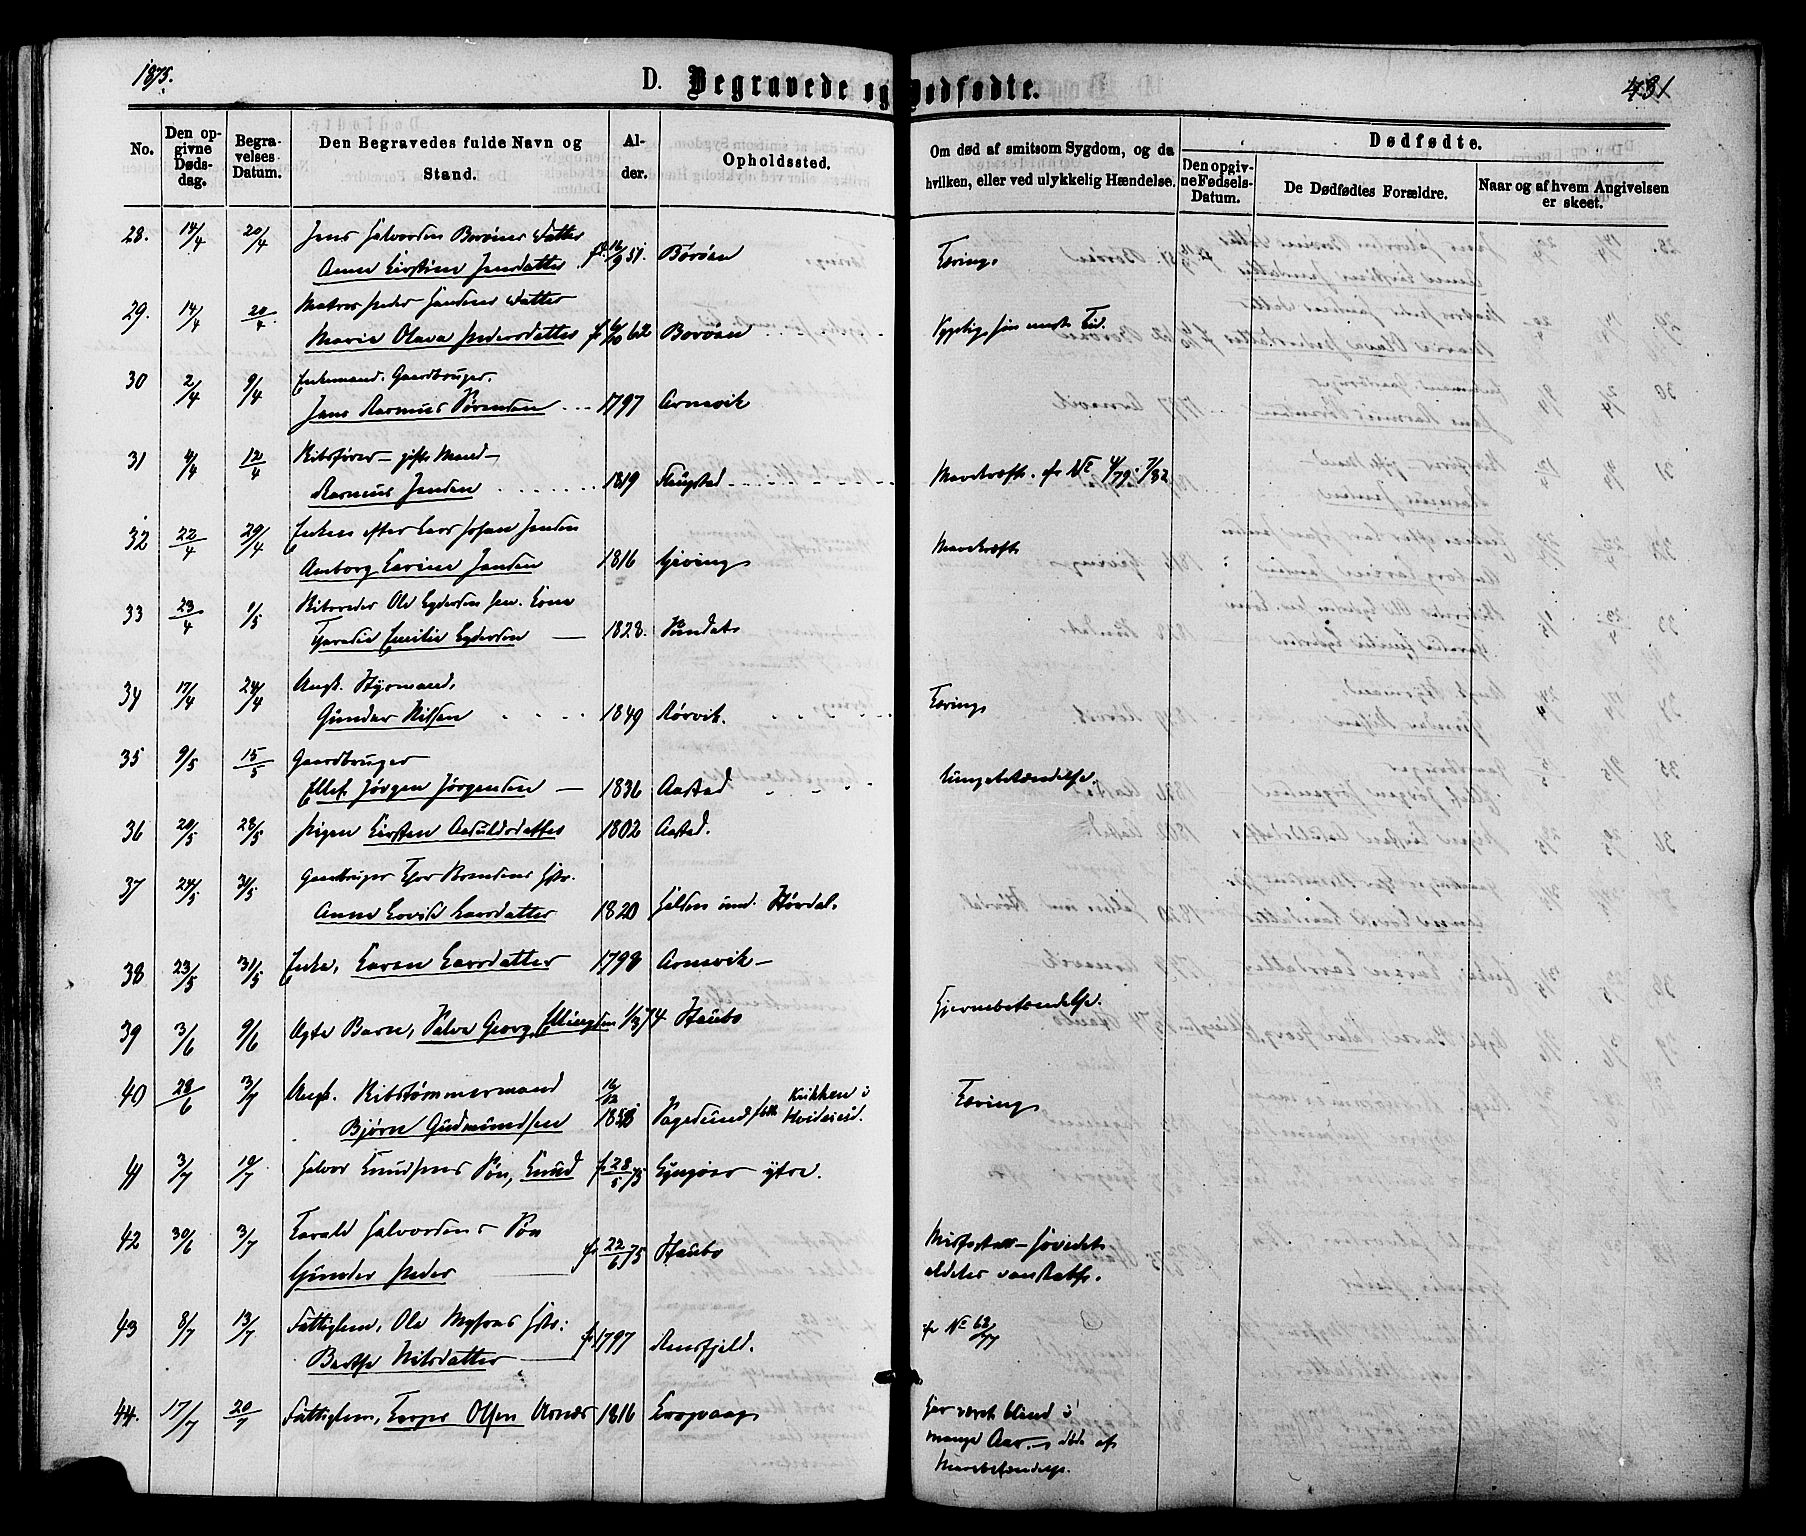 1875.
D. Begravede og Dødfødte.
431
No.
Den op-
givne
Døds-
dag.
Begra-
velses
Datum.
Den Begravedes fulde Navn og
Stand.
Al-
der.
Opholdssted.
Om død af smitsom Sygdom, og da
hvilken, eller ved ulykkelig Hændelse.
Dødfødte.
Den opgiv-
ne Fødsels-
Datum.
De Dødfødtes Forældre.
Naar og af hvem Angivelsen
er skeet.
28. 14/4 20/4 Jens Halvorsens Borøens Datter
Anne Kirstine Jensdatter f. 16/9 51. Borøen Tæring
29. 14/4 20/4 Matros Peder Datter
Marie Olava Pedersdatter f. 6/10 62 Borøen
30 2/4 9/4 Enkemand. Gaardbruger.
Jens Rasmus Sørensen 1797 Arnevik
31 4/4 12/4 Skibsfører gift Mand
Rasmus Jensen 1819 Flaugstad Mavekræft. cfr No 4/79, 7/82
32 22/4 29/4 Enken efter Lars Johan Jensen
Anborg Karine Jensen 1816 Gjeving Mavekræft
33 23/4 1/5 Skibsreder Ole Eydersen sen. Kone
Emilie Eydersen 1828. Sundet
34 17/4 24/4 Ungk. Styrmand.
Gunder Nilsen 1849 Rørvik. Tæring
35 9/5 15/5 Gaardbruger
Ellef Jørgen Jørgensen 1836 Aastad Lungebetændelse.
36 20/5 28/5 Pigen Kirsten Aasuldsdatter 1802 Aastad.
37 24/5 31/5 Gaardbruger Hstr.
Anne Lovise Larsdatter 1820
38 23/5 31/5 Enke, Karen Larsdatter 1798 Arnevik
39 3/6 9/6 Ægte Barn, Salve Georg Ellingsen 74 Staubø Hjernebetændelse.
40 28/6 3/7 Ungk. Skibstømmermand
Bjørn Gudmundsen 16/12 1850 Sagesund født i Hvideseid. Tæring
41 3/7 10/7 Halvor Knudsens Søn, Knud f. 28/5 75 Lyngøer ytre.
42 30/6 3/7 Harald Halvorsens Søn
Gunder Peder f. 22/6 75 Staubø Misfoster Hovedet
aldeles vanskabt.
43 8/7 13/7 Fattiglem, Ole Hstr:
Berthe Nilsdatter f. 1797 Rensfjeld. cfr No 62/77
44. 17/7 20/7 Fattiglem, Olsen Arnæs 1816 Krogvaag Har været blind i
mange Aar, døde af
Mavebetændelse.